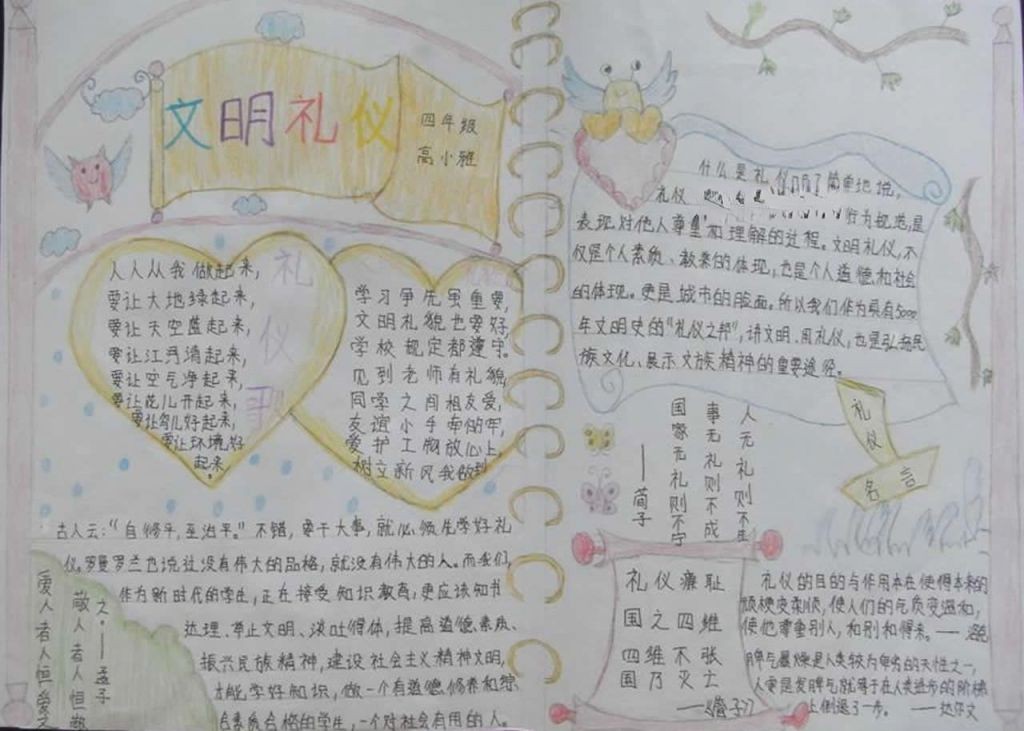 文明礼仪
四年级
高小雅
礼仪
人人从我做起来,
要让大地绿起来,
要让天空蓝起来,
要让江河清起来,
要让空气净起来,
要让花儿开起来,
要让鸟儿好起来,
要让环境好
起来。
学习争先虽重要,
文明礼貌也要好,
学校规定都遵守。
见到老师有礼貌,
同学之间相友爱,
友谊小手牵的牢,
爱护工物放心上,
树立新风我做到
古人云:“自修乎,至治平。”不错,要干大事,就必须先学好礼
仪,罗曼罗兰也说过没有伟大的品格,就没有伟大的人。而我们,
作为新时代的学生,正在接受知识教育,更应该知书
达理、举止文明、谈吐得体,提高道德素质、
振兴民族精神,建设社会主义精神文明,
才能学好知识,做一个有道德修养和综
合素质合格的学生,一个对社会有用的人。
爱人者人恒爱之
敬人者人恒敬
之·——孟子
什么是礼仪
简单地说,
礼仪
行为规范,是
表现对他人尊重和理解的过程。文明礼仪,不
仅是个人素质、教养的体现,也是个人道德和社会
的体现。更是城市的脸面。所以我们作为具有5000
年文明史的“礼仪之邦”,讲文明、用礼仪,也是弘扬民
族文化、展示文族精神的重要途径。
礼仪
名言
人无礼则不生
事无礼则不成
国家无礼则不宁
——荀子
礼仪廉耻
国之四维
四维不张
国乃灭亡
——《管子》
礼仪的目的与作用本在使得本来的
顽梗变柔顺,使人们的气质变温和,
使他尊重别人,和别和得来。——
脾气暴燥是人类较为卑劣的天性之一,
人要是发脾气就等于在人类进步的阶梯
上倒退了一步。——达尔文